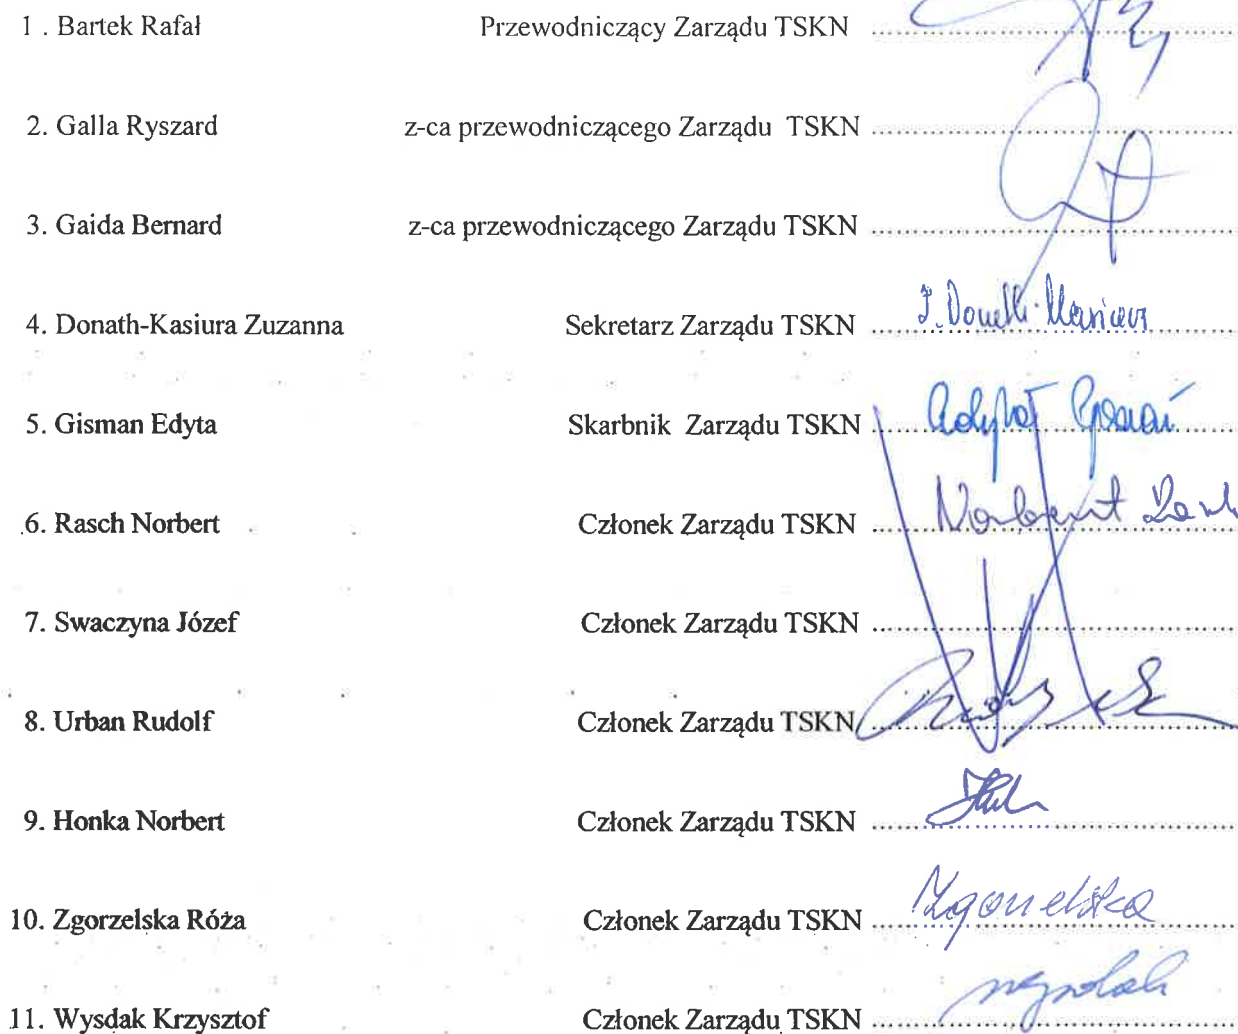 1 . Bartek Rafał Przewodniczący Zarządu TSKN ..........
2. Galla Ryszard z-ca przewodniczącego Zarządu TSKN ..........
3. Gaida Bernard z-ca przewodniczącego Zarządu TSKN ..........
4. Donath-Kasiura Zuzanna Sekretarz Zarządu TSKN ..........
5. Gisman Edyta Skarbnik Zarządu TSKN ..........
6. Rasch Norbert Członek Zarządu TSKN .......... Norbert
7. Swaczyna Józef Członek Zarządu TSKN ..........
8. Urban Rudolf Członek Zarządu TSKN ..........
9. Honka Norbert Członek Zarządu TSKN ..........
10. Zgorzelska Róża Członek Zarządu TSKN ..........
11. Wysdak Krzysztof Członek Zarządu TSKN ..........